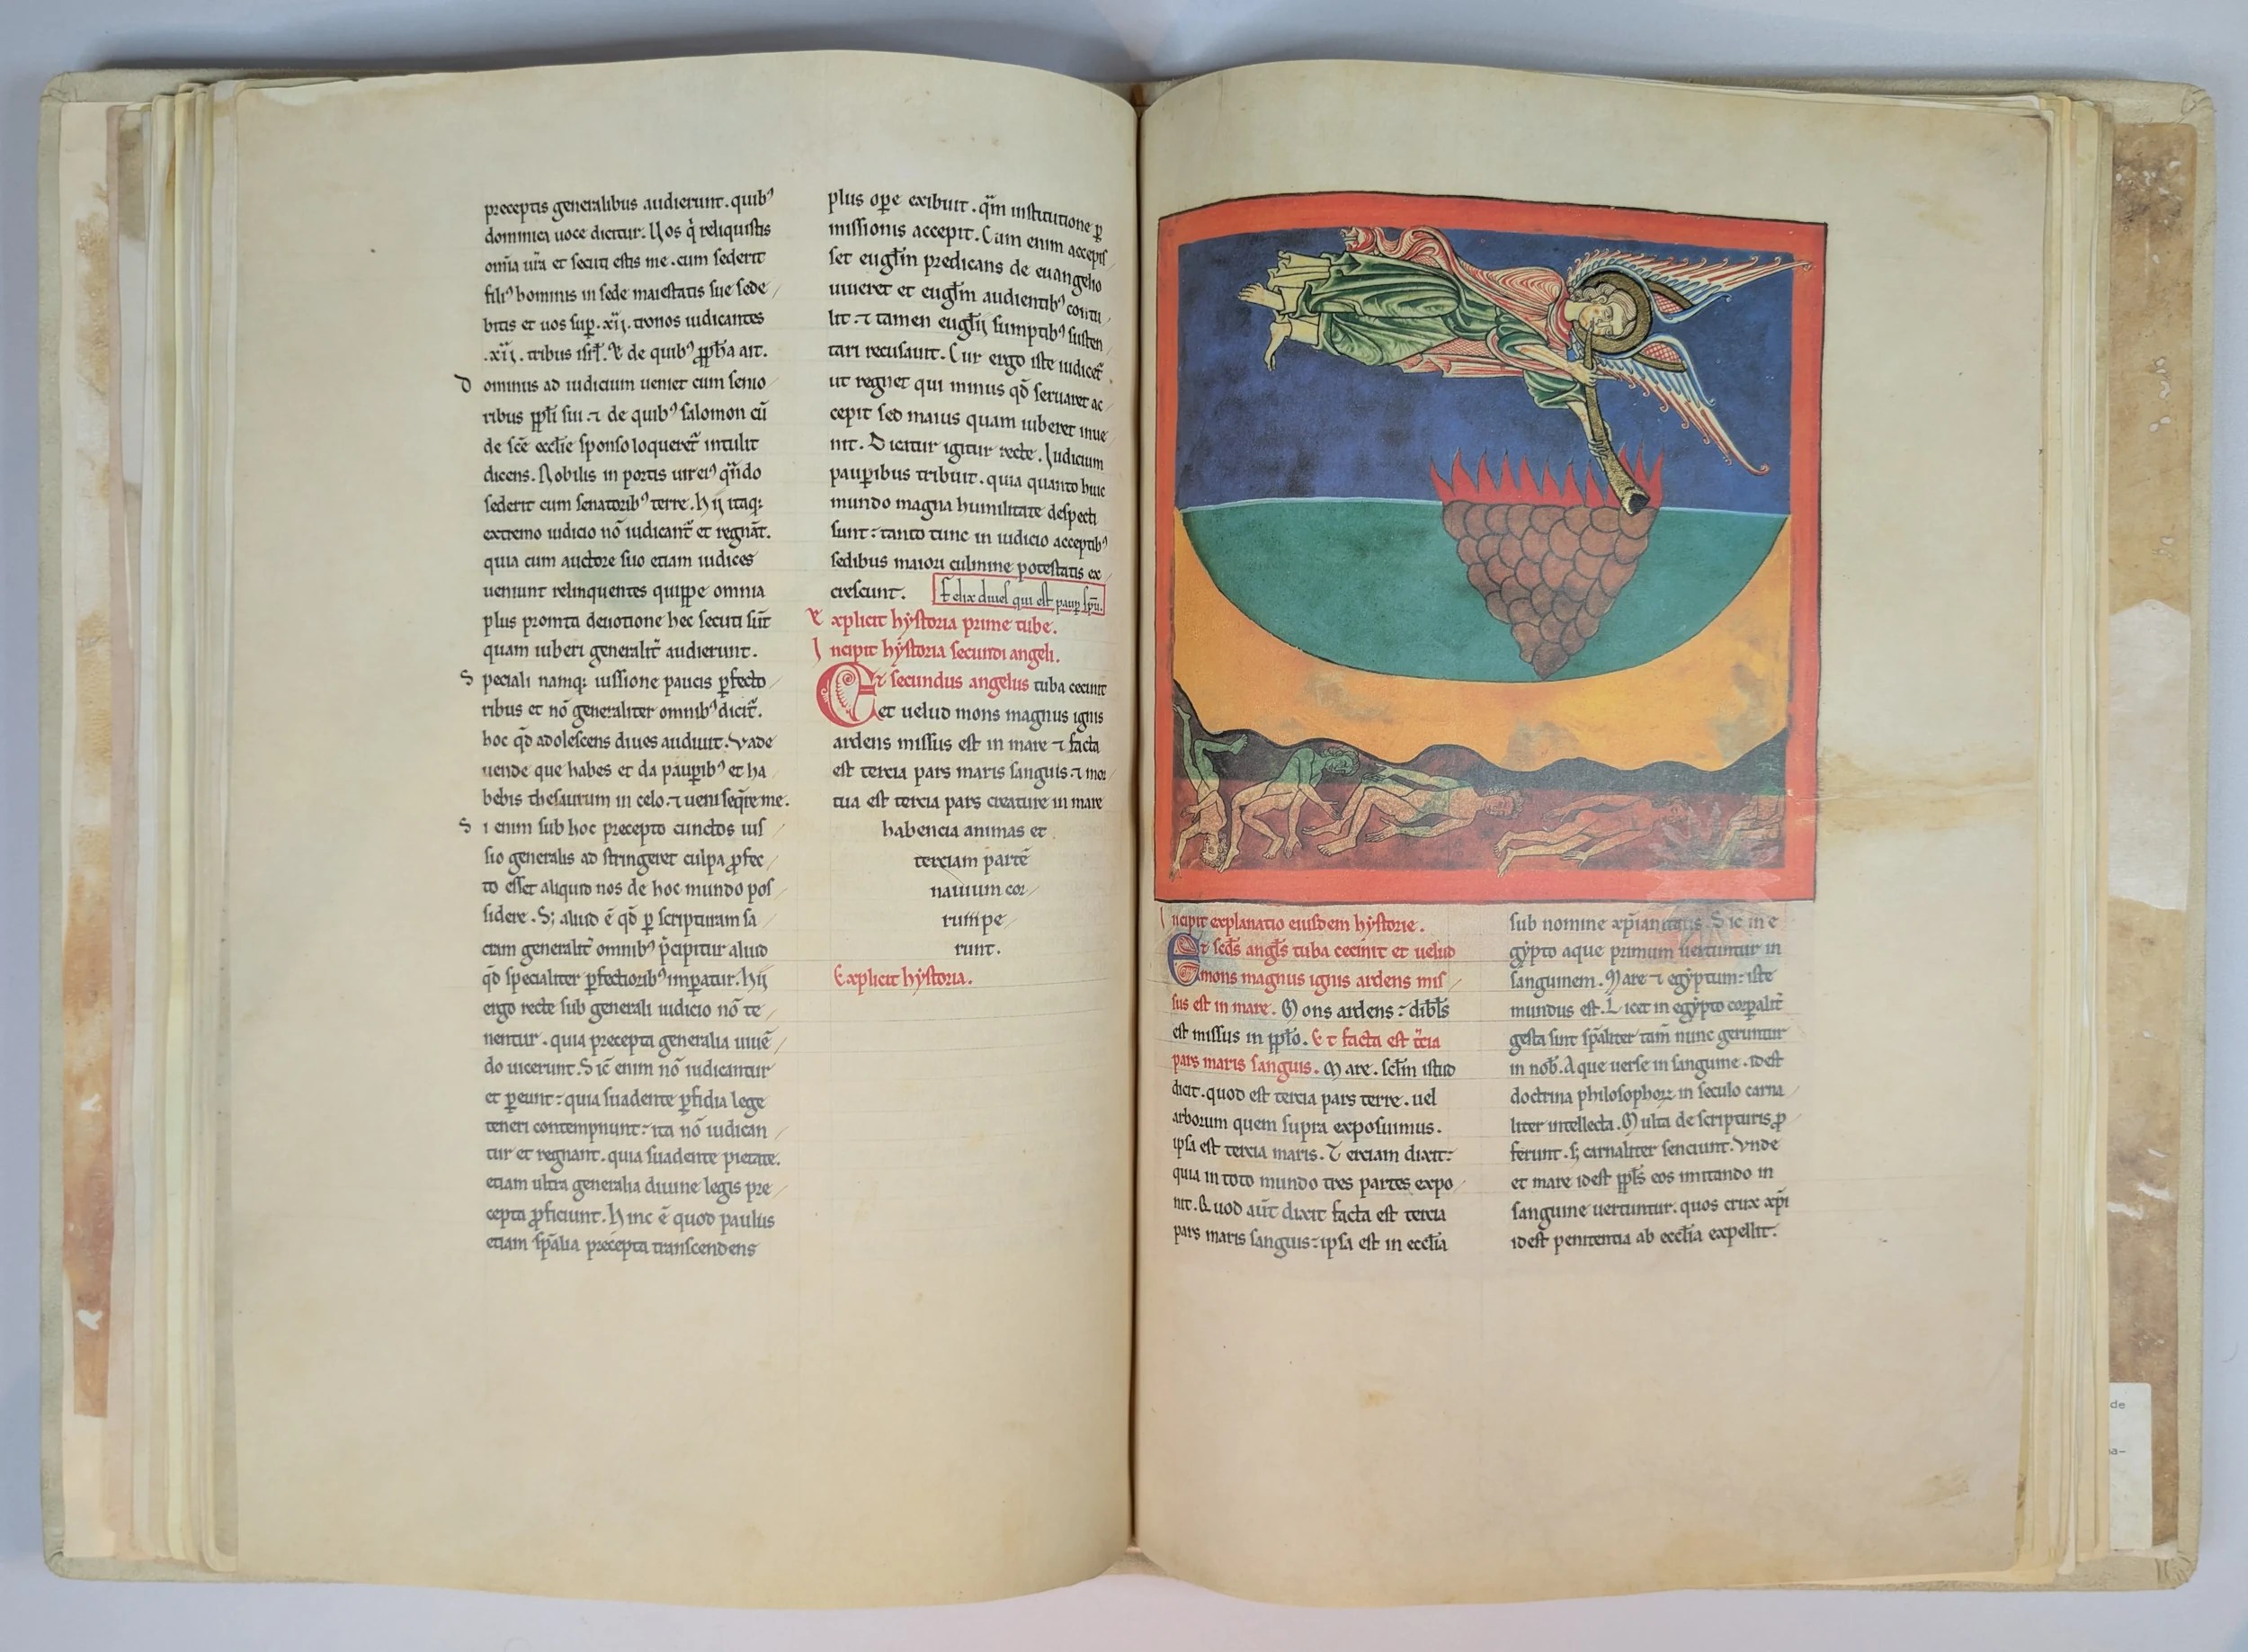 preceptis generalibus audierunt. quibꝰ
dominica uoce dicitur. Uos q̇ reliquistis
om̄ia ur̄a et secuti estis me. cum sederit
filiꝰ hominis in sede maiestatis sue sede
bitis et uos sup̄. xij. tronos iudicantes
.xij. tribus isrl̄. Et de quibꝰ ꝓph̄a ait.
Dominus ad iudicium ueniet cum senio
ribus ppl̄i sui. ⁊ de quibꝰ salomon cū
de sc̄e eccl̄ie sponso loqueret̄ intulit
dicens. Nobilis in portis uir eiꝰ qn̄do
sederit cum senatoribꝰ terre. Hij itaq:
extremo iudicio nō iudicant̄ et regnāt.
quia cum auctore suo etiam iudices
ueniunt relinquentes quippe omnia
plus promta deuotione hec secuti sūt
quam iuberi generalit̄ audierunt.
Speciali namq: iussione paucis ꝑfecto
ribus et nō generaliter omnibꝰ dicit̄.
hoc qđ adolescens diues audiuit. Vade
uende que habes et da pauꝑibꝰ et ha
bebis thesaurum in celo. ⁊ ueni seq̄re me.
Si enim sub hoc precepto cunctos ius
sio generalis ad stringeret culpa ꝓfec
to esset aliquid nos de hoc mundo pos
sidere. S; aliud ē qđ ꝑ scripturam sa
cram generalit̄ omnibꝰ p̄cipitur aliud
qđ specialiter ꝑfectioribꝰ imꝑatur. Hij
ergo recte sub generali iudicio nō te
nentur. quia precepta generalia uiuē
do uicerunt. Sic̄ enim nō iudicantur
et ꝑeunt: quia suadente ꝑfidia lege
teneri contempnunt: ita nō iudican
tur et regnant. quia suadente pietate.
etiam ultra generalia diuine legis pre
cepta ꝓficiunt. Hinc ē quod paulus
etiam sp̄alia precepta transcendens
plus oꝑe exibuit. qm̄ institutione ꝑ
missionis accepit. Cum enim accepis
set eugl̄m predicans de euangelio
uiueret et eugl̄m audientibꝰ contu
lit. ⁊ tamen eugl̄ij sumptibꝰ susten
tari recusauit. Cur ergo iste iudicet̄
ut regnet qui minus qđ seruaret ac
cepit sed maius quam iuberet inue
nit. Dicatur igitur recte. Iudicium
pauꝑibus tribuit. quia quanto huic
mundo magna humilitate despecti
sunt: tanto tunc in iudicio acceptibꝰ
sedibus maiori culmine potestatis ex
crescunt. Felix diues qui est pauꝑ spū.
Explicit hystoria prime tube.
Incipit hystoria secundi angeli.
Et secundus angelus tuba cecinit
et uelud mons magnus ignis
ardens missus est in mare ⁊ facta
est tercia pars maris sanguis. ⁊ mor
tua est tercia pars creature in mare
habencia animas et
terciam partē
nauium cor
rumpe
runt.
Explicit hystoria.
Incipit explanatio eiusdem hystorie.
Et sc̄ds angl̄s tuba cecinit et uelud
mons magnus ignis ardens mis
sus est in mare. Mons ardens: dibl̄s
est missus in ppl̄o. Et facta est t̄cia
pars maris sanguis. Mare. scl̄m istud
dicit. quod est tercia pars terre. uel
arborum quem supra exposuimus.
ipsa est tercia maris. Terciam dixit:
quia in toto mundo tres partes expo
nit. Quod aūt dixit facta est tercia
pars maris sanguis: ipsa est in eccl̄ia
sub nomine xp̄ianitatis. Sic in e
gypto aque primum uertuntur in
sanguinem. Mare ⁊ egyptum: iste
mundus est. Licet in egypto corꝑalit̄
gesta sint sp̄aliter tam̄ nunc geruntur
in nob̄. Aque uerse in sanguine. idest
doctrina philosophoꝝ in seculo carna
liter intellecta. Multa de scripturis ꝓ
ferunt. s; carnaliter senciunt. Vnde
et mare idest ppl̄s eos imitando in
sanguine uertuntur. quos crux xp̄i
idest penitentia ab eccl̄ia expellit.
de